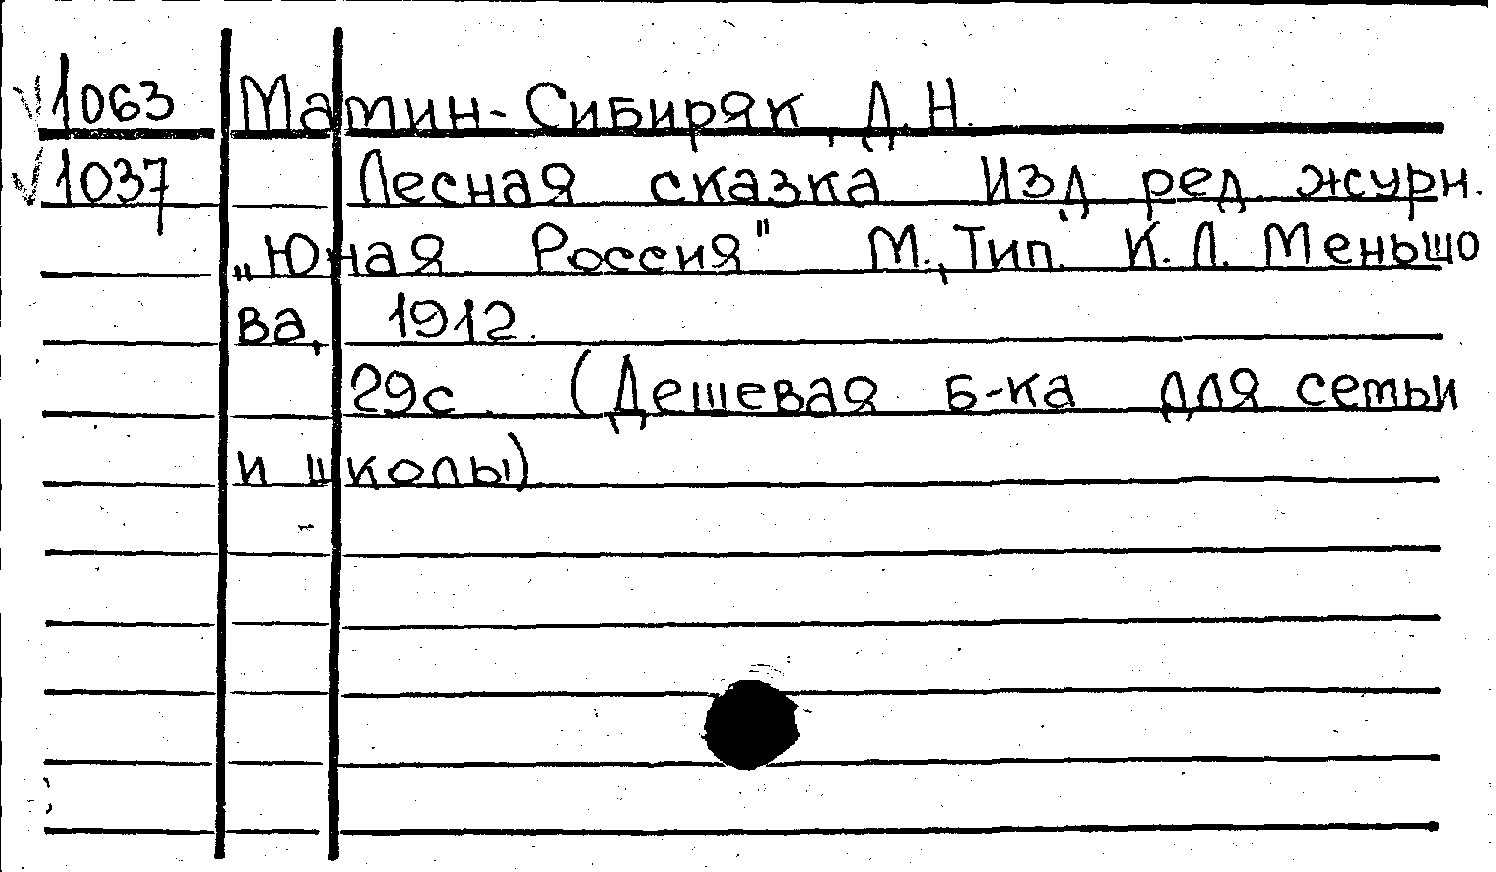 1063 Мамин-Сибиряк, Д. Н.
1037 Лесная сказка Изд. ред. журн.
„Юная Россия" М., Тип. К. Л. Меньшо
ва, 1912.
29с. (Дешевая б-ка для семьи
и школы)